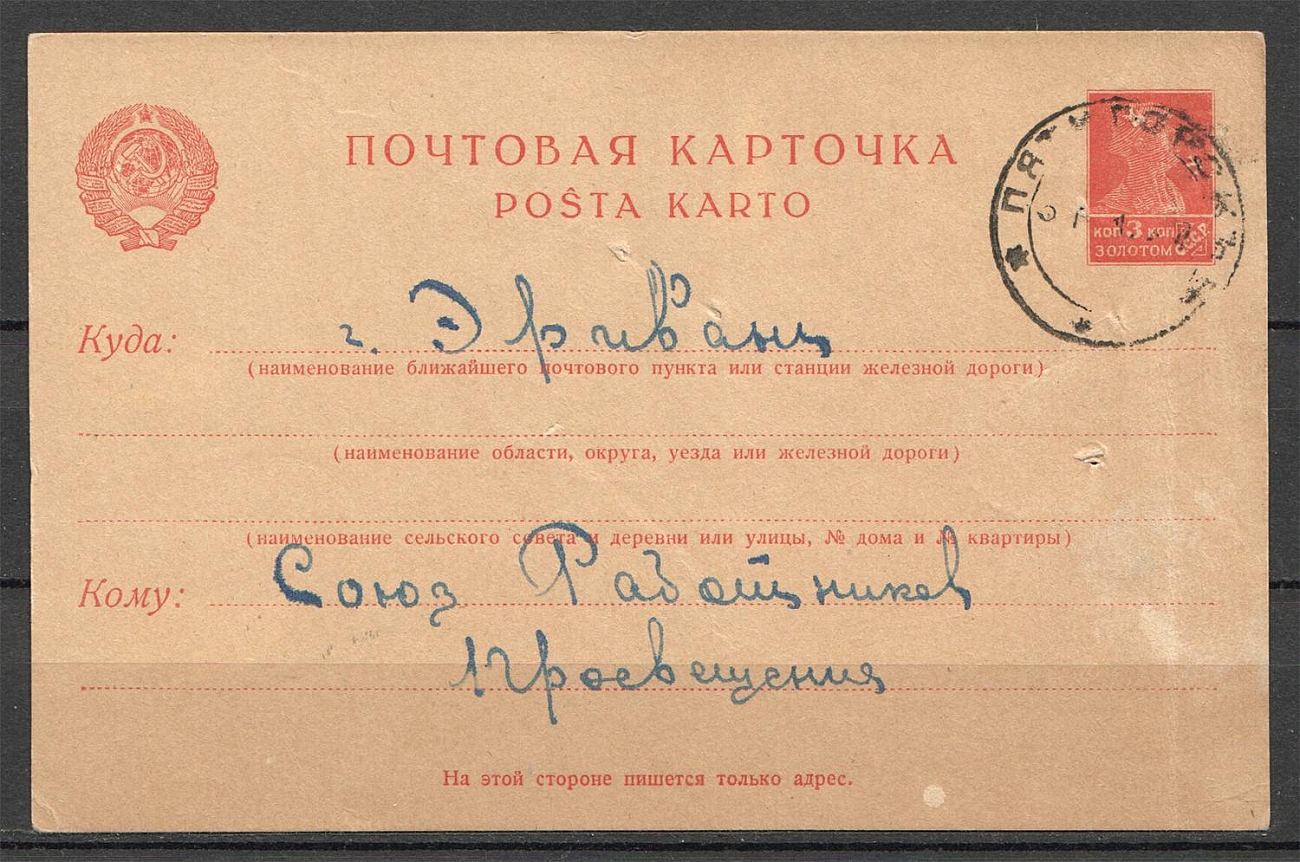 ПОЧТОВАЯ КАРТОЧКА
POŜTA KARTO
ПЯТИГОРСК
КОП 3 КОП
ЗОЛОТОМ
СССР
Куда: г. Эривань
(наименование ближайшего почтового пункта или станции железной дороги)
(наименование области, округа, уезда или железной дороги)
(наименование сельского совета и деревни или улицы, № дома и № квартиры)
Кому: Союз Работников
Просвещения
На этой стороне пишется только адрес.